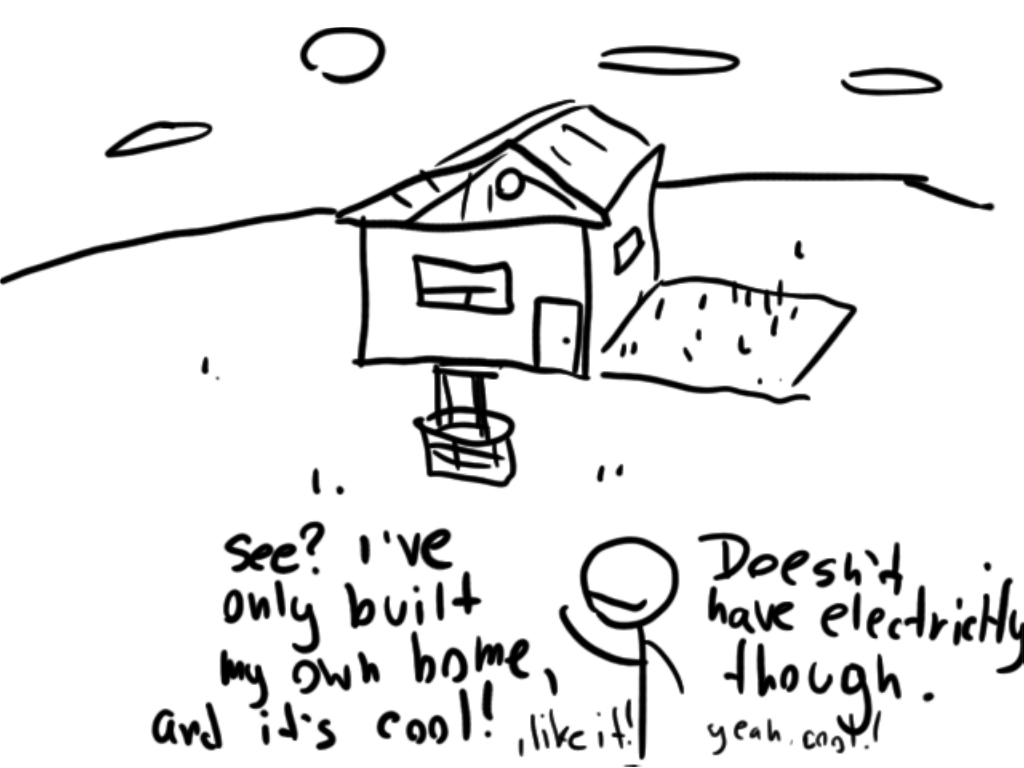 see? i've
only built
my own home,
and it's cool!
, like it!
Doesn't
have electrictly
though.
yeah. cool!